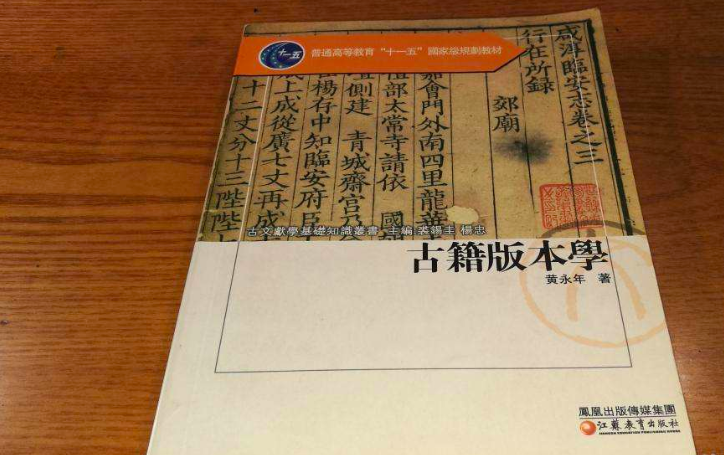 十一五
普通高等教育“十一五”國家級規劃教材
咸淳臨安志卷之三
行在所録
郊廟
嘉會門外南四里龍華
值部太常寺請依 國朝
側建 青城齋宮乃
楊存中知臨安府臣
成上成從廣七丈再成
十二丈分十三陛陛七
古文獻學基礎知識叢書 主編 裘錫圭 楊忠
古籍版本學
黄永年 著
鳳凰出版傳媒集團
江蘇教育出版社